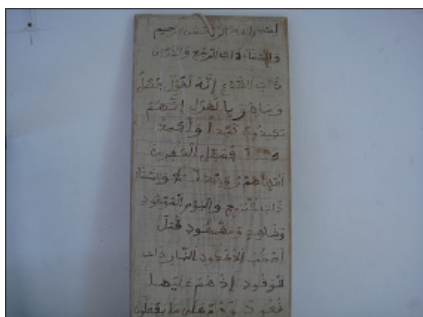 الله الرحمن الرحيم
والسماء ذات الرجع والارض
ذات الصدع إنه لقول فصل
وما هو بالهزل إنهم
يكيدون كيدا وأكيد
فمهل الكفرين
أمهلهم رويدا والسماء
ذات البروج واليوم الموعود
وشاهد ومشهود قتل
أصحب الأخدود النار ذات
الوقود إذ هم عليها
قعود وهم على ما يفعلون